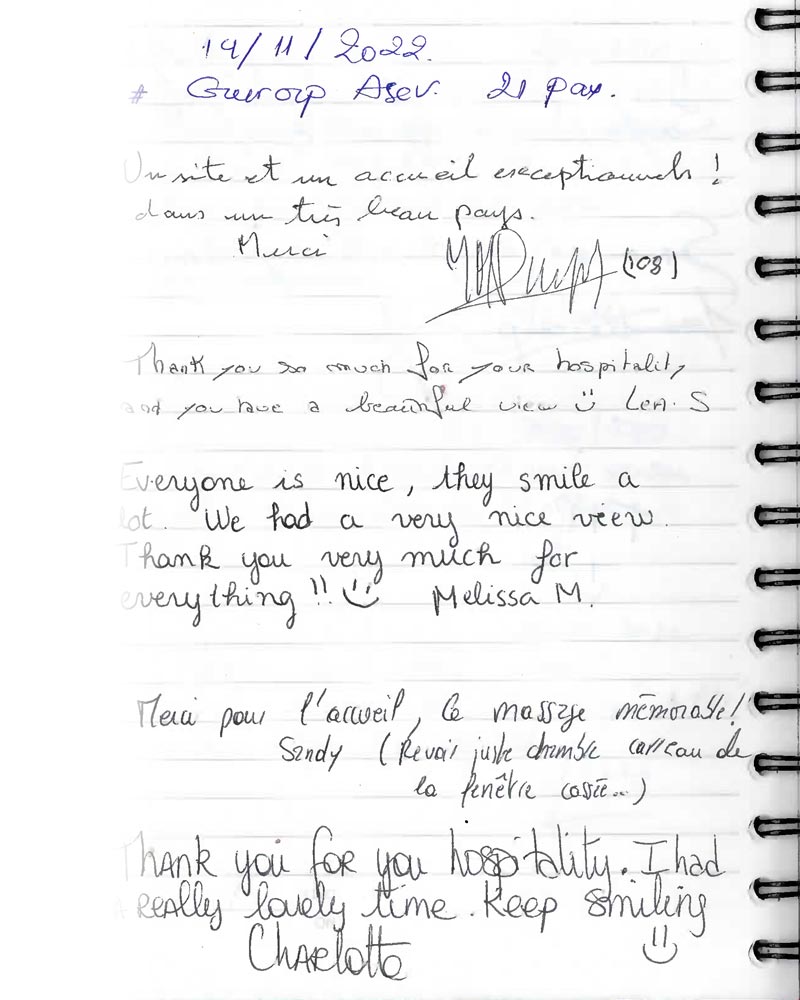 14/11/2022.
# Guroip Asev. 21 pax.
Un site et un accueil exceptionnels !
dans un très beau pays.
Merci
(108)
Thank you so much for your hospitality
and you have a beautiful view Lea. S
Everyone is nice, they smile a
lot. We had a very nice view.
Thank you very much for
everything !! Melissa M.
Merci pour l'accueil, le massage mémorable!
Sandy (Revoir juste chambre carreau de
la fenêtre cassée...)
Thank you for you hospitality. I had
A REALLY lovely time. Keep smiling
Charlotte